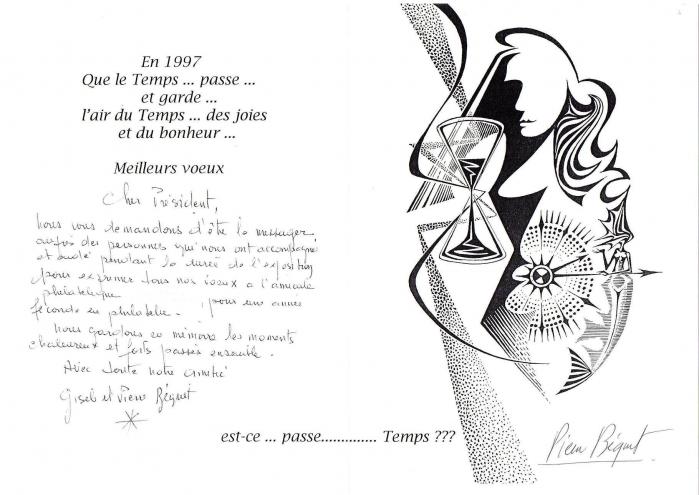 En 1997
Que le Temps ... passe ...
et garde ...
l'air du Temps ... des joies
et du bonheur ...
Meilleurs voeux
Cher Président,
nous vous demandons d'être le messager
auprès des personnes qui nous ont accompagné
et aidé pendant la durée de l'exposition
pour exprimer tous nos voeux a l'amicale
philatélique pour une année
féconde en philatélie.
Nous gardons en mémoire les moments
chaleureux et forts passés ensemble.
Avec toute notre amitié
et Pierre Béquet
est-ce ... passe.............. Temps ???
Pierre Béquet